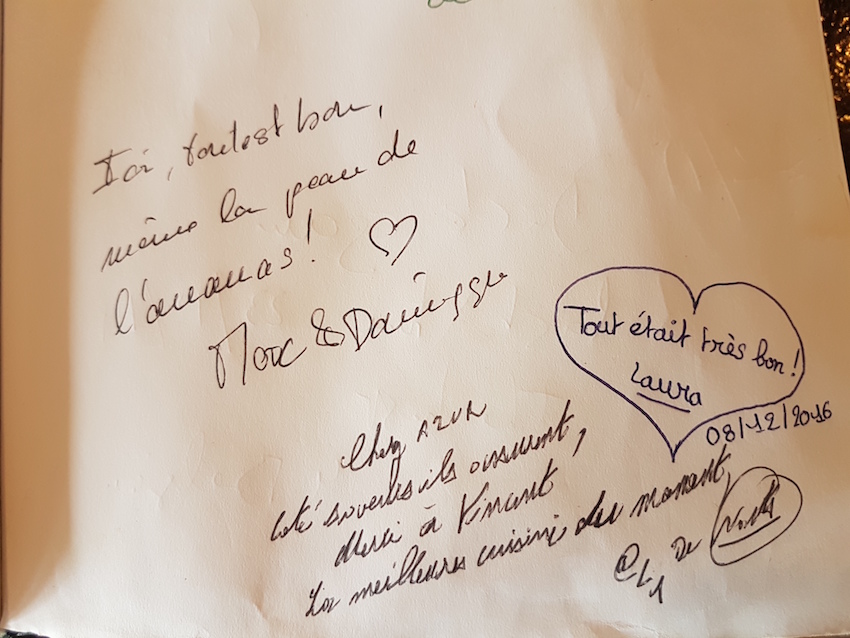 Ici, tout est bon,
même la peau de
l'ananas!
Marc & Dominique
Tout était très bon!
Laura
08/12/2016
Chez AZUR
Coté saveurs ils assurent,
Merci à Vincent,
La meilleures cuisine du moment,
De